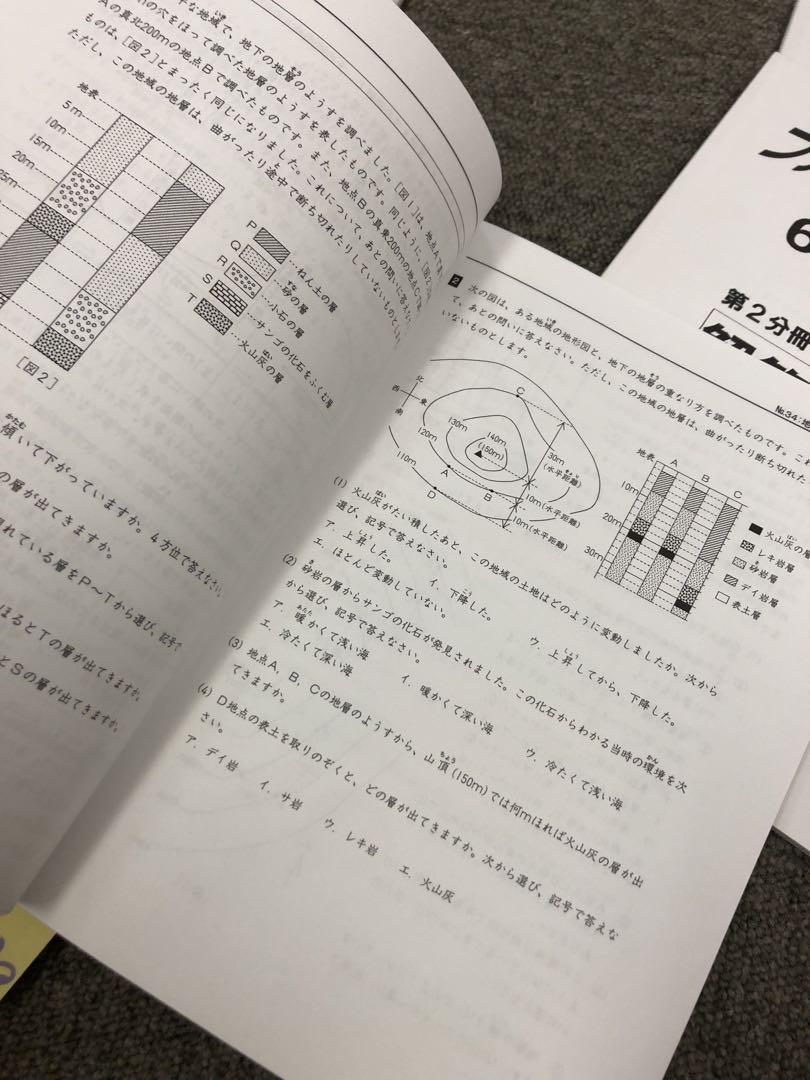 な地域で、地下の地層のようすを調べました。[図1]は、地点Aで
の穴をほって調べた地層のようすを表したものです。同じように、[図2]
Aの真北200mの地点Bで調べたものです。また、地点Bの真東200mの地点Cで
ものは、[図2]とまったく同じになりました。これについて、あとの問いに答えな
ただし、この地域の地層は、曲がったり途中で断ち切れたりしていないものとし
地表
5m
10m
15m
20m
25m
[図2]
P …ねん土の層
Q …砂の層
R …小石の層
S …サンゴの化石をふくむ層
T …火山灰の層
傾いて下がっていますか。4方位で答えなさい。
の層が出てきますか。
れている層をP〜Tから選び、記号で
ほるとTの層が出てきますか。
とSの層が出てきますか。
2 次の図は、ある地域の地形図と、地下の地層の重なり方を調べたものです。これ
て、あとの問いに答えなさい。ただし、この地域の地層は、曲がったり断ち切れた
いないものとします。
北
西 東
南
C
140m
130m
(150m)
120m
110m
A
B
D
30m
(水平距離)
10m(水平距離)
10m(水平距離)
地表 A B C
10m
20m
30m
火山灰の層
レキ岩層
砂岩層
デイ岩層
表土層
(1) 火山灰がたい積したあと、この地域の土地はどのように変動しましたか。次から
選び、記号で答えなさい。
ア. 上昇した。 イ. 下降した。 ウ. 上昇してから、下降した。
エ. ほとんど変動していない。
(2) 砂岩の層からサンゴの化石が発見されました。この化石からわかる当時の環境を次
から選び、記号で答えなさい。
ア. 暖かくて浅い海 イ. 暖かくて深い海 ウ. 冷たくて浅い海
エ. 冷たくて深い海
(3) 地点A、B、Cの地層のようすから、山頂(150m)では何mほれば火山灰の層が出
てきますか。
(4) D地点の表土を取りのぞくと、どの層が出てきますか。次から選び、記号で答えな
さい。
ア. デイ岩 イ. サ岩 ウ. レキ岩 エ. 火山灰
6
第2分冊
№34:地